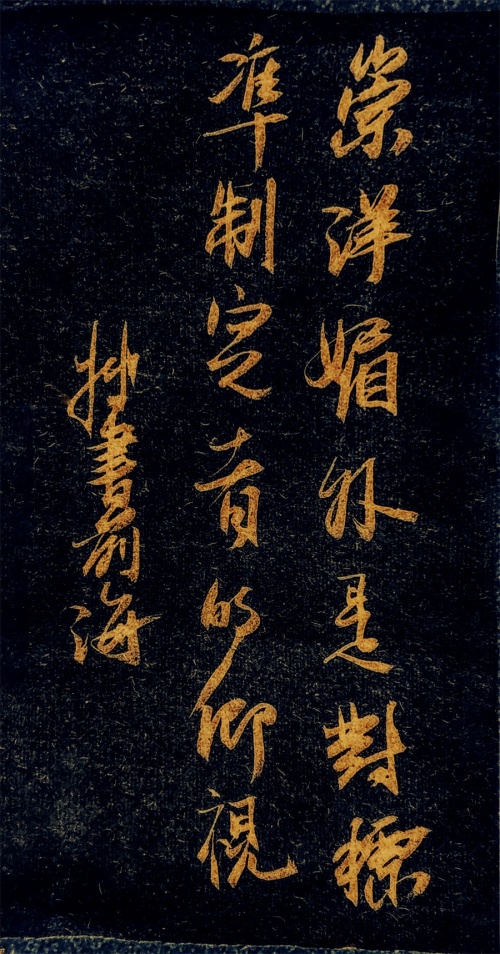 崇洋媚外是對標
準制定者的仰視
抄書前海